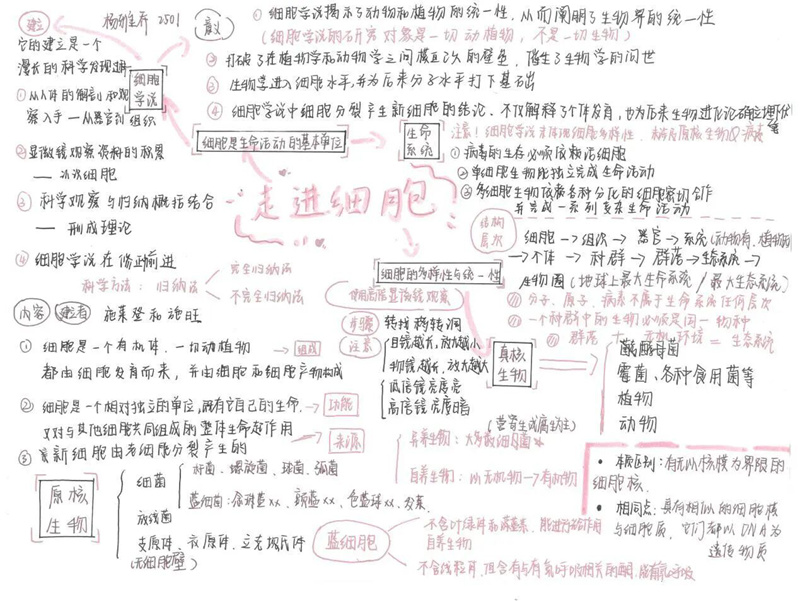 建立
2501
意义
① 细胞学说揭示了动物和植物的统一性，从而阐明了生物界的统一性
(细胞学说的研究对象是一切动植物，不是一切生物)
它的建立是一个
漫长的科学发现过程
② 打破了在植物学和动物学之间横亘已久的壁垒，催生了生物学的问世
细胞
学说
③ 生物学进入细胞水平，并为后来分子水平打下基础
① 从人体的解剖和观
察入手—从器官到组织
④ 细胞学说中细胞分裂产生新细胞的结论、不仅解释了个体发育，也为后来生物进化论确立埋伏笔
细胞是生命活动的基本单位
生命
系统
注意！细胞学说未体现细胞多样性，未涉及原核生物及病毒
① 病毒的生存必须依赖活细胞
② 单细胞生物能独立完成生命活动
③ 多细胞生物依赖各种分化的细胞密切合作
并完成一系列复杂生命活动
② 显微镜观察资料的积累
—— 认识细胞
走进细胞
③ 科学观察与归纳概括结合
—— 形成理论
结构
层次
细胞→组织→器官→系统(动物有，植物
→个体→种群→群落→生态系统→
生物圈(地球上最大生命系统/最大生态系统)
④ 细胞学说在修正前进
细胞的多样性与统一性
科学方法： 归纳法
完全归纳法
不完全归纳法
使用高倍显微镜观察
分子、原子、病毒不属于生命系统任何层次
一个种群中的生物必须是同一物种
群落 + 无机环境 = 生态系统
内容
建立者
施莱登和施旺
步骤
转找移转调
注意
目镜越长，放大越小
物镜越长，放大越大
低倍镜亮度亮
高倍镜亮度暗
① 细胞是一个有机体，一切动植物
组成
都由细胞发育而来，并由细胞和细胞产物构成
真核
生物
酵母菌
霉菌、各种食用菌等
植物
动物
② 细胞是一个相对独立的单位，既有它自己的生命，
功能
又对与其他细胞共同组成的整体生命起作用
③ 新细胞由老细胞分裂产生的
来源
(营寄生或腐生)
异养生物：大多数细菌
自养生物：以无机物→有机物
原核
生物
细菌
杆菌、螺旋菌、球菌、弧菌
蓝细菌：念珠蓝xx、颤蓝xx、色蓝球xx、发菜
放线菌
支原体、衣原体、立克次氏体
(无细胞壁)
蓝细胞
不含叶绿体和藻蓝素，能进行光合作用
自养生物
不含线粒体，但含有与有氧呼吸相关的酶，能有氧呼吸
• 本质区别：有无以核膜为界限的
细胞核.
• 相同点：具有相似的细胞膜
与细胞质，它们都以DNA为
遗传物质